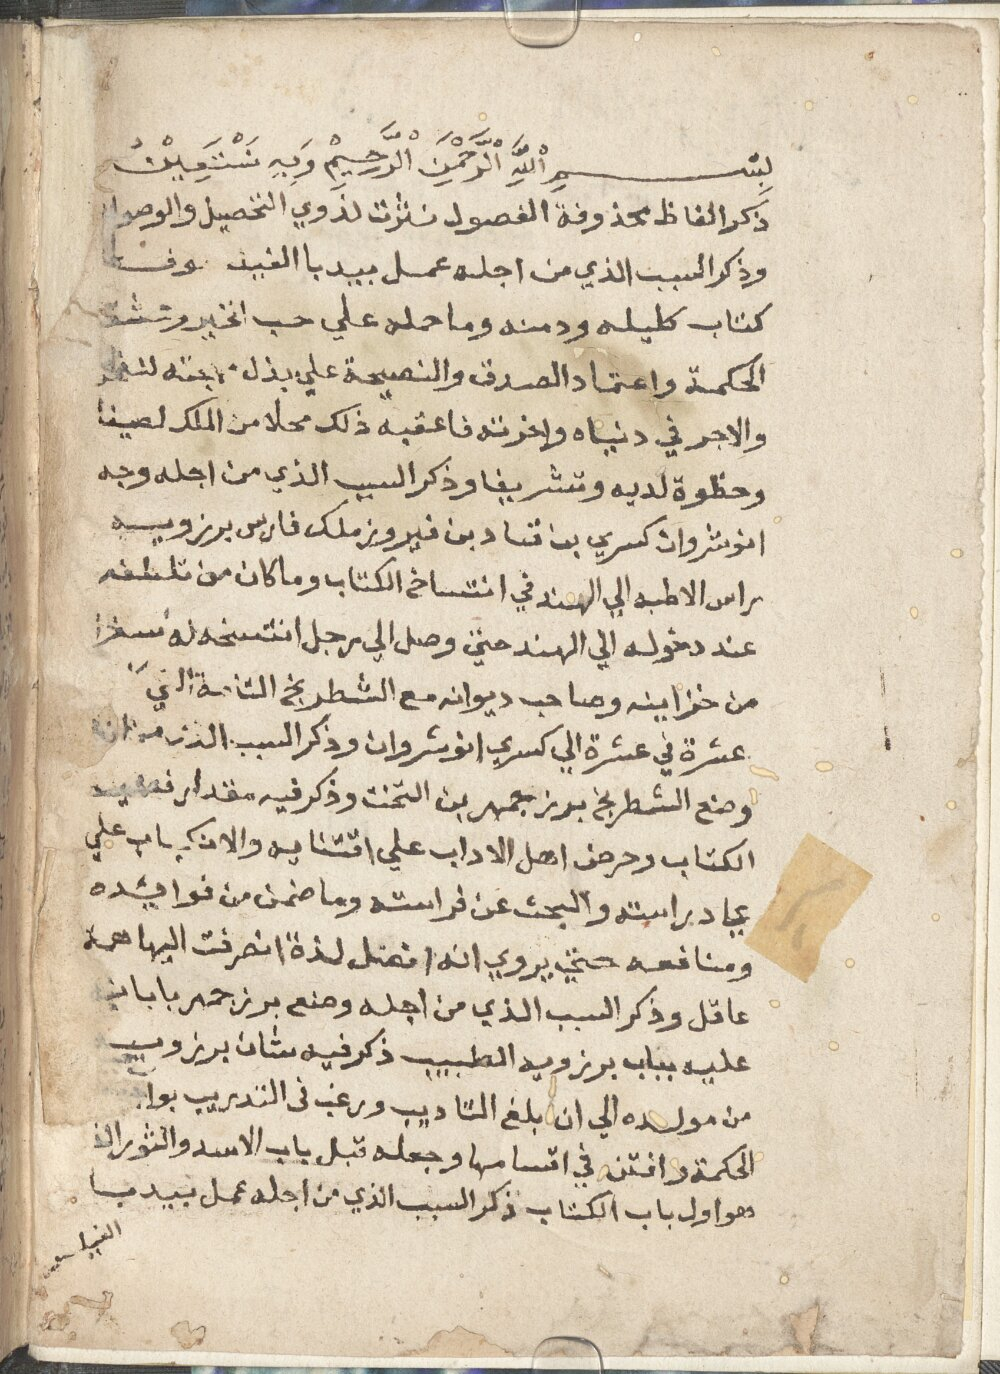 بِسْمِ اللَّهِ الرَّحْمَنِ الرَّحِيمِ وَبِهِ نَسْتَعِينُ
ذكر الفاظ محذوفة الفصول نثرت لذوي التحصيل والوصول
وذكر السبب الذي من اجله عمل بيدبا الفيلسوف
كتاب كليله ودمنه وما حمله علي حب الخير و
الحكمة واعتماد الصدق والنصيحة علي بذل
والاجر في دنياه واخرته فاعقبه ذلك محلا من الملك لصيقا
وحظوة لديه وتشريفا وذكر السبب الذي من اجله وجه
انوشروان كسري بن قباد بن فيروز ملك فارس برزويه
راس الاطبه الي الهند في انتساخ الكتاب وما كان من تلطفه
عند دخوله الي الهند حتي وصل الي رجل انتسخه له سرا
من خزاينه وصاحب ديوانه مع الشطرنج التامة التي
عشرة في عشرة الي كسري انوشروان وذكر السبب الذي من اجله
وضع الشطرنج بزرجمهر بن البختك وذكر فيه مقدار فضيلة
الكتاب وحرض اهل الاداب علي اقتنايه والانكباب علي
دراسته والبحث عن فراسته وما ضمن من فوايده
ومنافعه حتي يروي انه افضل لذة انصرفت اليها همة
عاقل وذكر السبب الذي من اجله وضع بزرجمهر بابا
عليه بباب برزويه الطبيب ذكر فيه شان برزويه
من مولده الي ان بلغ التاديب ورغب في التدريب بوا
الحكمة وافتن في اقسامها وجعله قبل باب الاسد والثور الذ
هو اول باب الكتاب ذكر السبب الذي من اجله عمل بيدبا
الفيلسوف